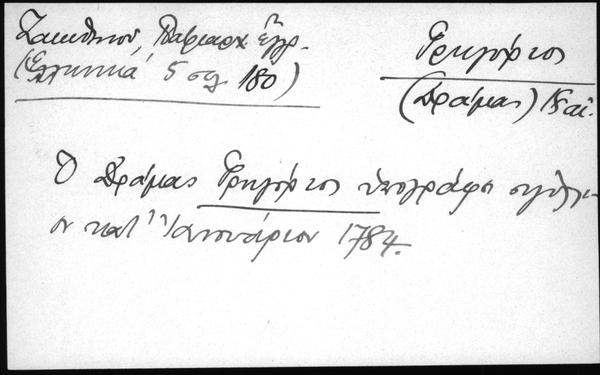 Ζακυθηνού, Πατριαρχ. Έγγρ.
(Ελληνικά 5 σελ. 180)
Γρηγόριος
(Δράμας) ΙΗ' αι.
Ο Δράμας Γρηγόριος υπογράφει σιγίλλι-
ον κατ' Ιανουάριον 1784.